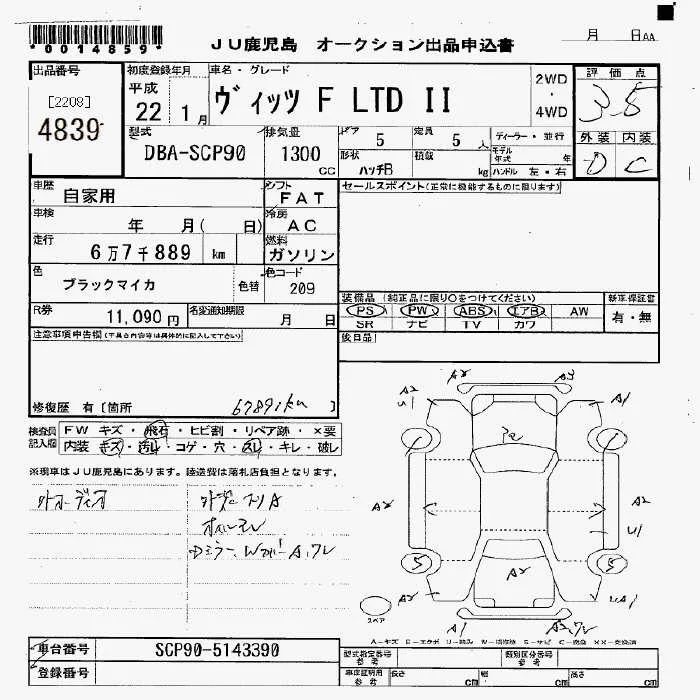 *0014859*
JU鹿児島 オークション出品申込書
月 日AA
出品番号
[2208]
4839
初度登録年月
平成
22 1月
車名・グレード
ヴィッツ F LTD II
2WD
・
4WD
評価点
3.5
外装 内装
D C
型式
DBA-SCP90
排気量
1300
CC
ドア 5
定員 5 人
形状 ハッチB
積載 kg
ディーラー・並行
モデル年式 年
ハンドル 左・右
車歴
自家用
シフト
FAT
車検
年 月( 日)
冷房
AC
走行
6万7千889 km
燃料
ガソリン
色
ブラックマイカ
色替
色コード
209
R券
11,090円
名変通知期限
月 日
セールスポイント(正常に機能するものに限ります)
装備品 (純正品に限り○をつけてください)
PS PW ABS エアB AW
SR ナビ TV カワ
新車保証書
有・無
後日品
注意事項申告欄(不具合内容等は具体的に記入して下さい)
修復歴 有[箇所 ]
67891km
検査員記入欄
FW キズ・飛石・ヒビ割・リペア跡・×要
内装 キズ・汚レ・コゲ・穴・スレ・キレ・破レ
※現車はJU鹿児島にあります。陸送費は落札店負担となります。
外オーディオ
A2 A3
A2 A1
U1
A2 A2
U1
A2
A2 UA1
A1
スペア
A-キズ
車台番号 SCP90-5143390
登録番号
型式指定番号 参考
類別区分番号 参考
車庫証明用 参考
長さ cm
幅 cm
高さ cm